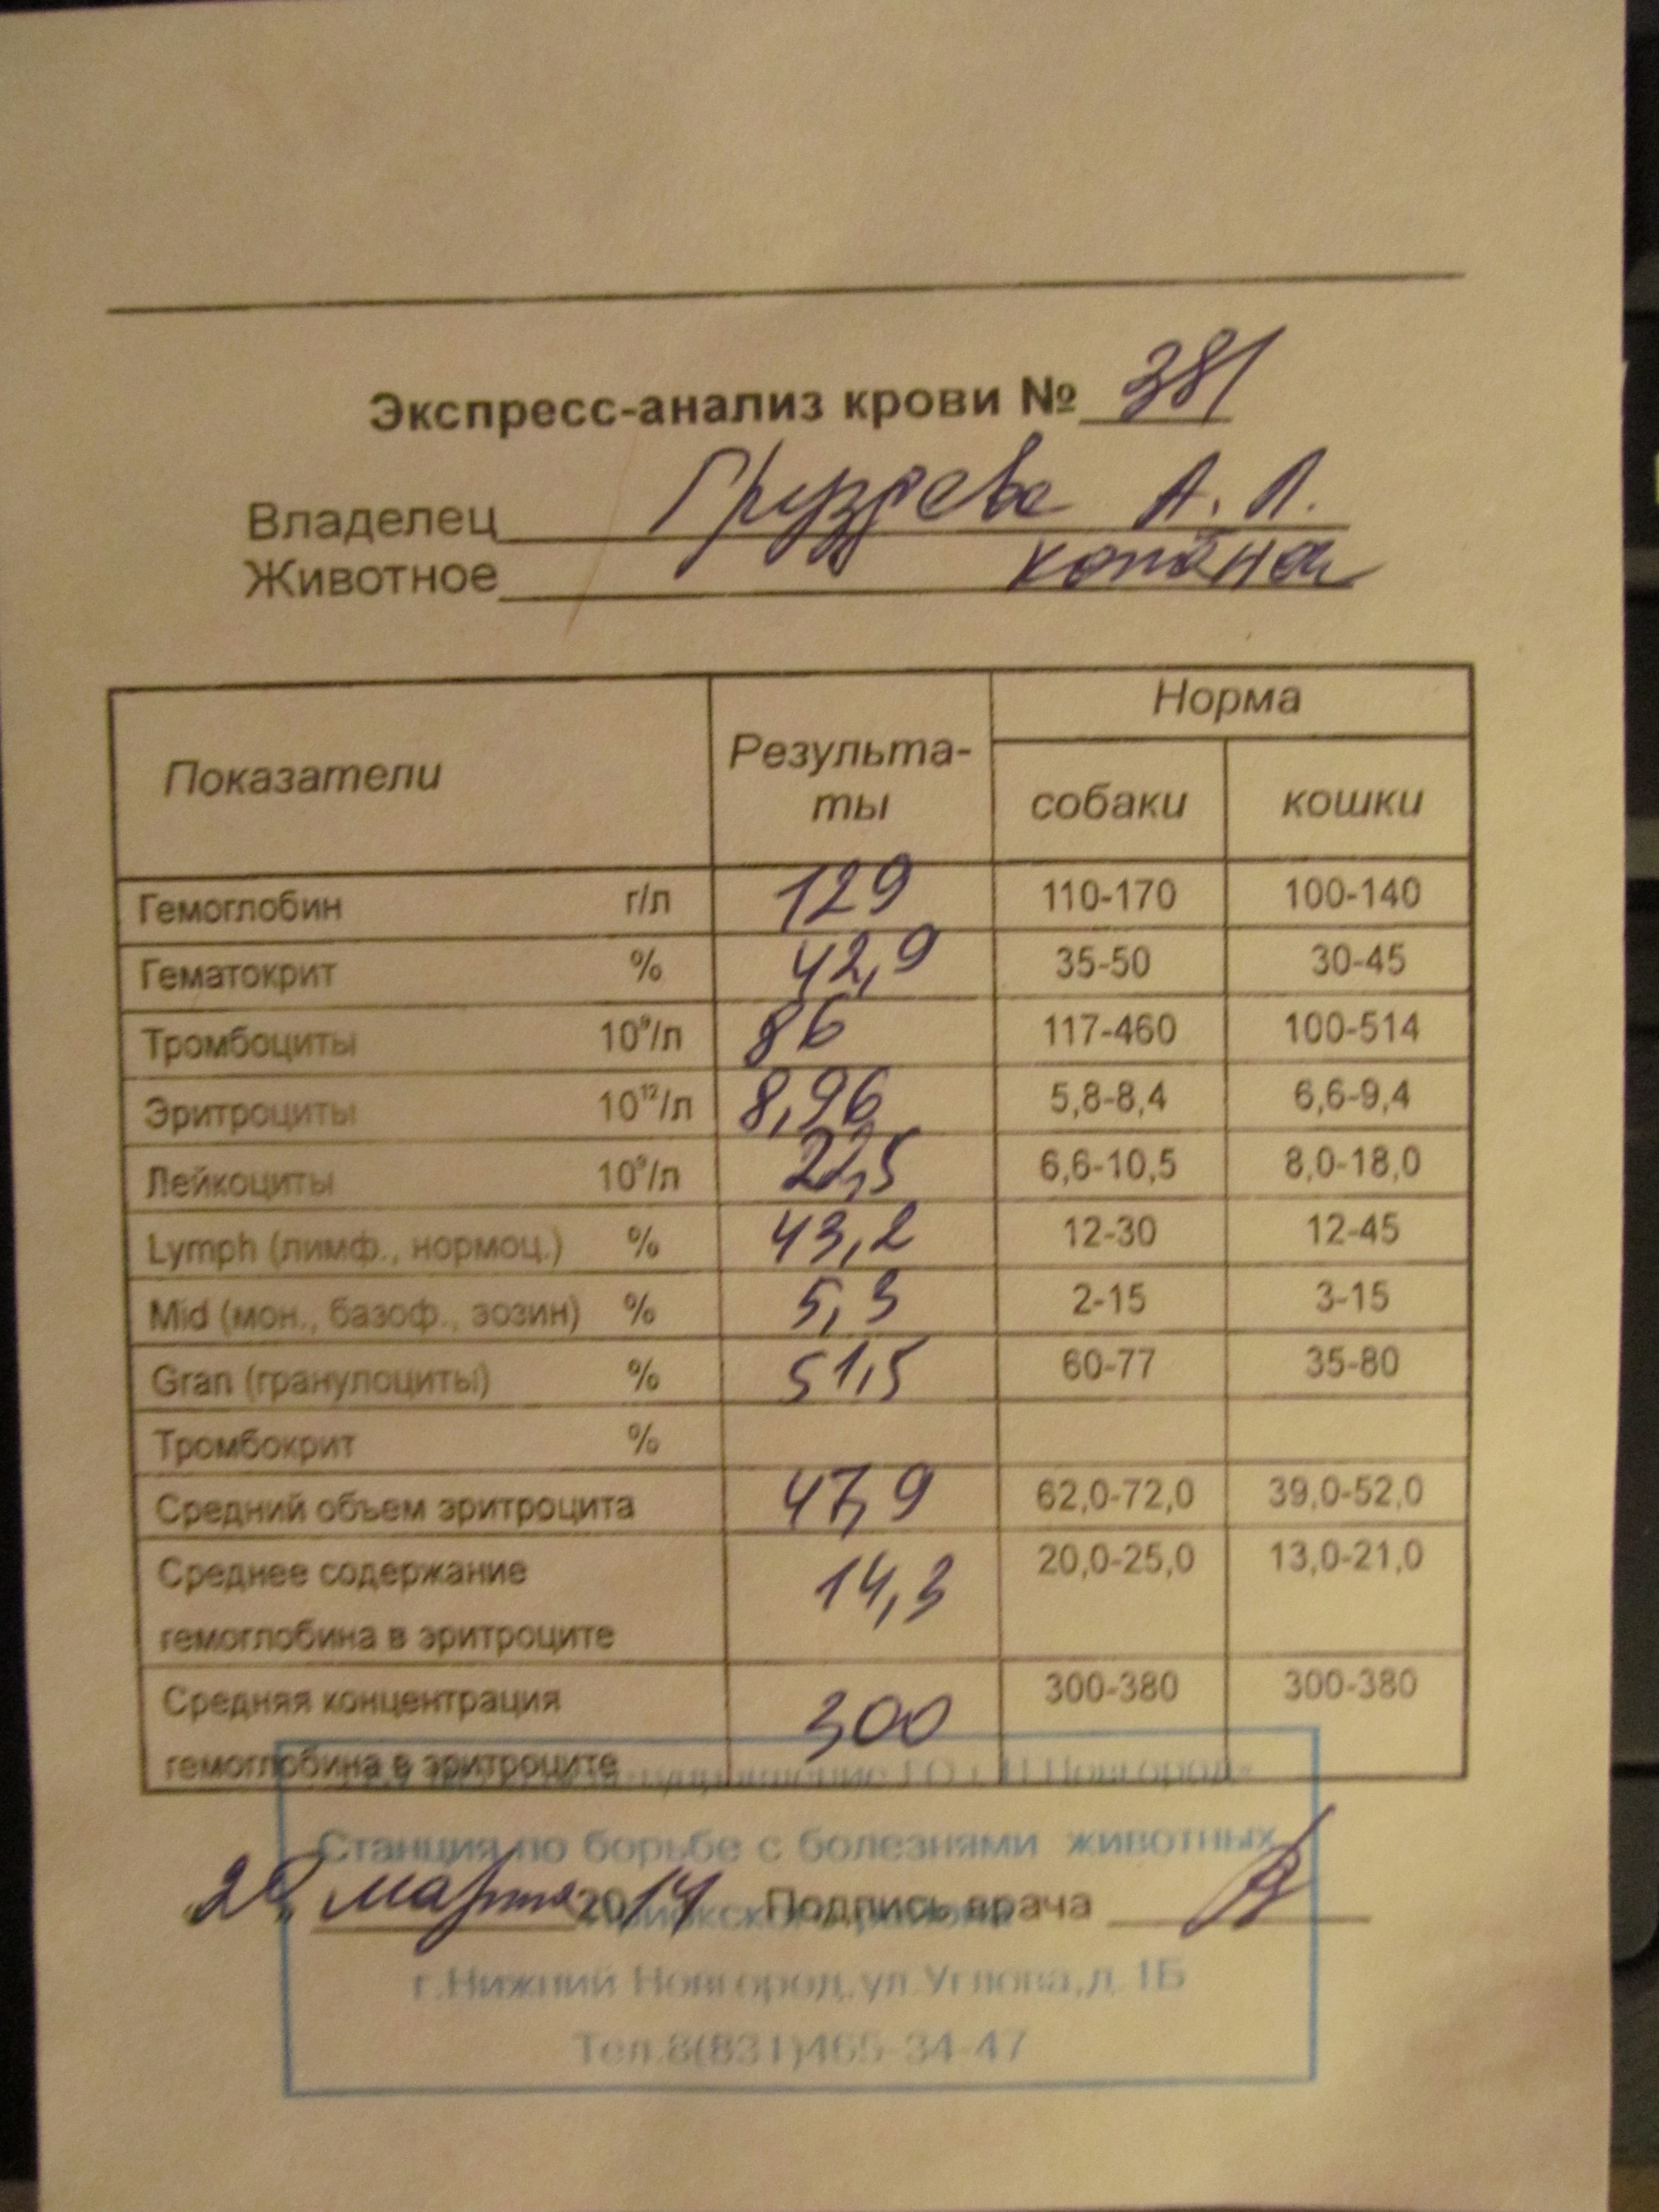 Экспресс-анализ крови № 381
Владелец Груздева А. Л.
Животное
Показатели Результа-ты Норма
собаки кошки
Гемоглобин г/л 129 110-170 100-140
Гематокрит % 42,9 35-50 30-45
Тромбоциты 10⁹/л 86 117-460 100-514
Эритроциты 10¹²/л 8,96 5,8-8,4 6,6-9,4
Лейкоциты 10⁹/л 22,5 6,6-10,5 8,0-18,0
Lymph (лимф., нормоц.) % 43,2 12-30 12-45
Mid (мон., базоф., эозин) % 5,3 2-15 3-15
Gran (гранулоциты) % 51,5 60-77 35-80
Тромбокрит %
Средний объем эритроцита 47,9 62,0-72,0 39,0-52,0
Среднее содержание 14,3 20,0-25,0 13,0-21,0
гемоглобина в эритроците
Средняя концентрация 300 300-380 300-380
гемоглобина в эритроците
Станция по борьбе с болезнями животных
марта 2014 Подпись врача
г.Нижний Новгород,ул.Углова,д.1Б
Тел.8(831)465-34-47